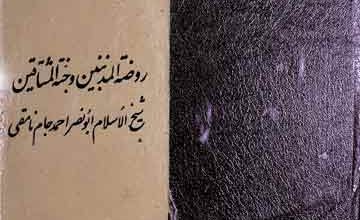 روضة المذنبین وجنة المشتاقین
شیخ الاسلام ابونصر احمد جام نامقی